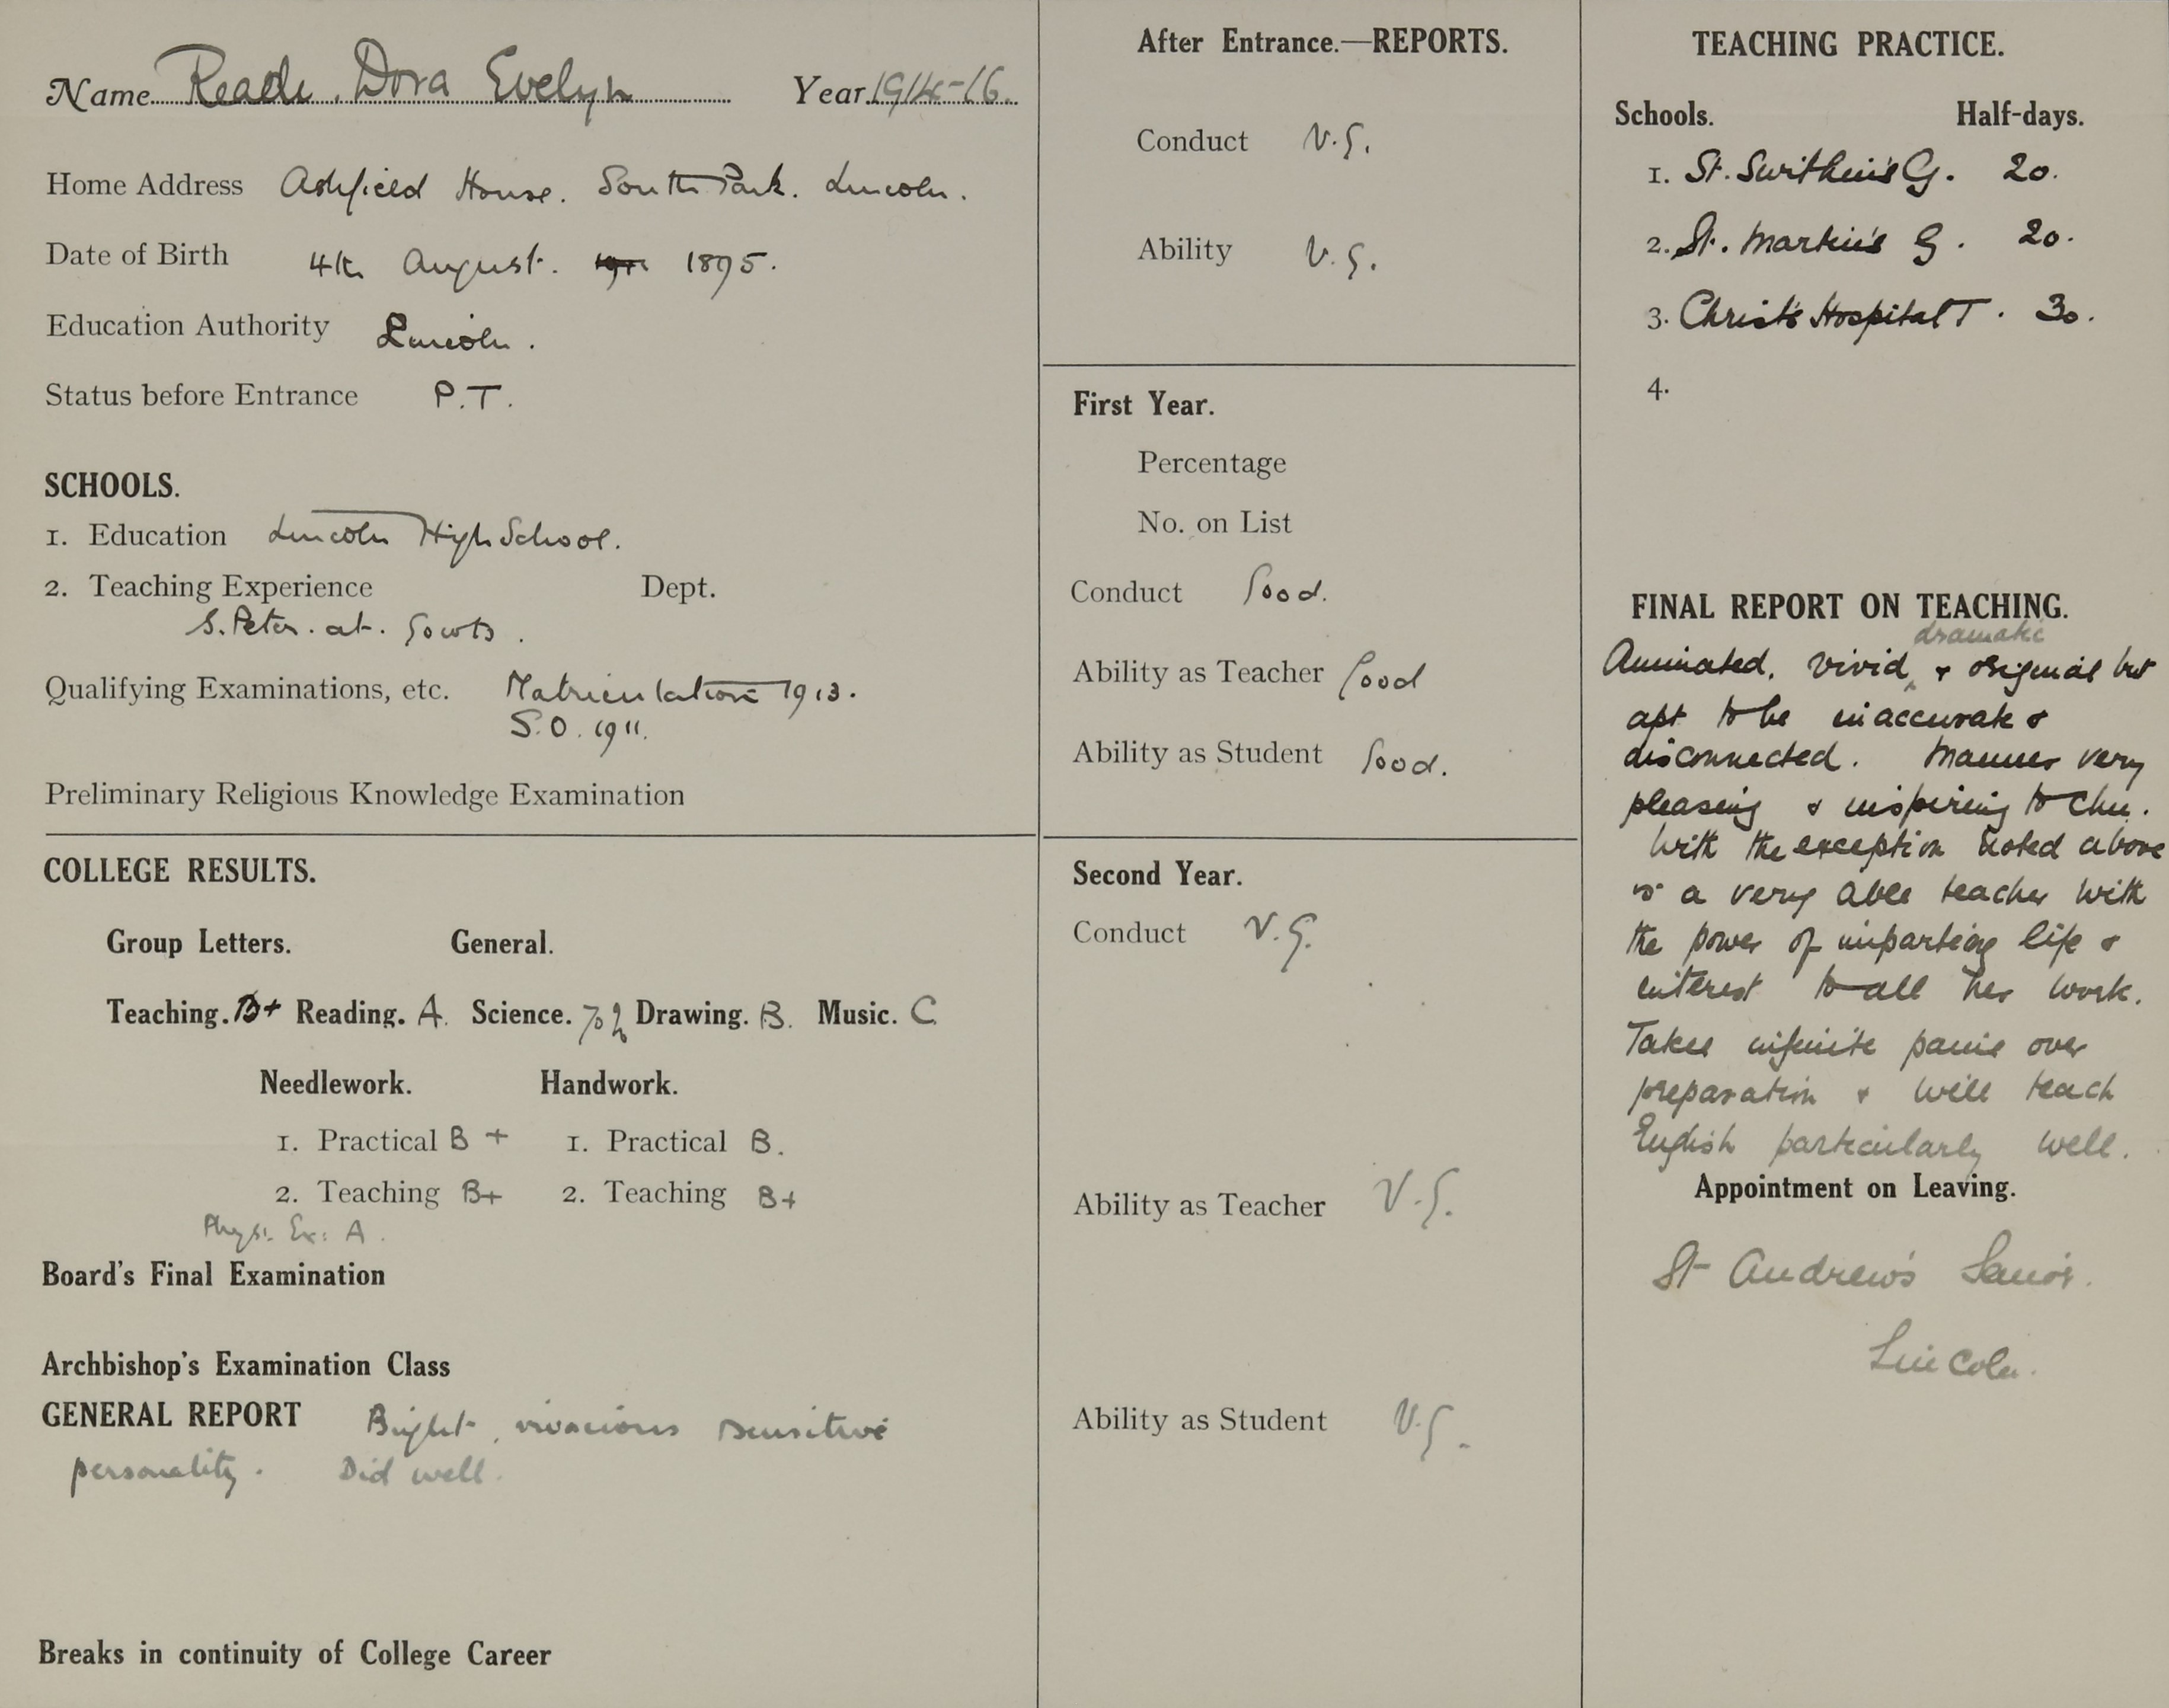 Name Reade, Dora Evelyn Year 1914-16.
Home Address Ashfield House. South Park. Lincoln.
Date of Birth 4th August. 1895.
Education Authority Lincoln.
Status before Entrance P.T.
SCHOOLS.
1. Education Lincoln High School.
2. Teaching Experience Dept.
S. Peter. at. Gowts.
Qualifying Examinations, etc. Matriculation 1913.
S.O. 1911.
Preliminary Religious Knowledge Examination
COLLEGE RESULTS.
Group Letters. General.
Teaching. B+ Reading. A. Science. Drawing. B. Music. C
Needlework. Handwork.
1. Practical B + 1. Practical B.
2. Teaching B+ 2. Teaching B+
Phys. Ex: A.
Board's Final Examination
Archbishop's Examination Class
GENERAL REPORT Bright, vivacious sensitive
personality. Did well.
Breaks in continuity of College Career
After Entrance.—REPORTS.
Conduct V.G.
Ability V.G.
First Year.
Percentage
No. on List
Conduct Good.
Ability as Teacher Good
Ability as Student Good.
Second Year.
Conduct V.G.
Ability as Teacher V.G.
Ability as Student V.G.
TEACHING PRACTICE.
Schools. Half-days.
1. St. Swithin's G. 20.
2. St. Martin's G. 20.
3. Christ's Hospital T. 30.
4.
FINAL REPORT ON TEACHING.
dramatic
Animated, vivid & original but
apt to be inaccurate &
disconnected. Manner very
pleasing & inspiring to chn.
With the exception noted above
is a very able teacher with
the power of imparting life &
interest to all her work.
Takes infinite pains over
preparation & will teach
English particularly well.
Appointment on Leaving.
St Andrew's Senior.
Lincoln.